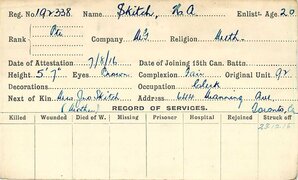 Reg. No. 192338 Name, Skitch, H. A. Enlist- Age 20
Rank Pte Company Religion Meth.
Date of Attestation 7/8/16 Date of Joining 15th Can. Batto.
Height 5' 7" Eyes Brown Complexion Fair Original Unit 92
Decorations Occupation Clerk
Next of Kin Mrs Jno Skitch Address 644 Manning Ave
(Mother) Toronto, Ca
RECORD OF SERVICES.
Killed Wounded Died of W. Missing Prisoner Hospital Rejoined Struck off
23.12.16